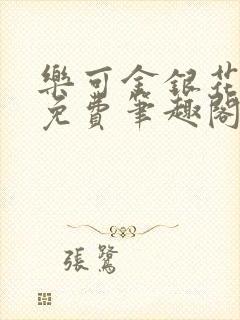 樂可金銀花
免費筆趣閣
張鷺